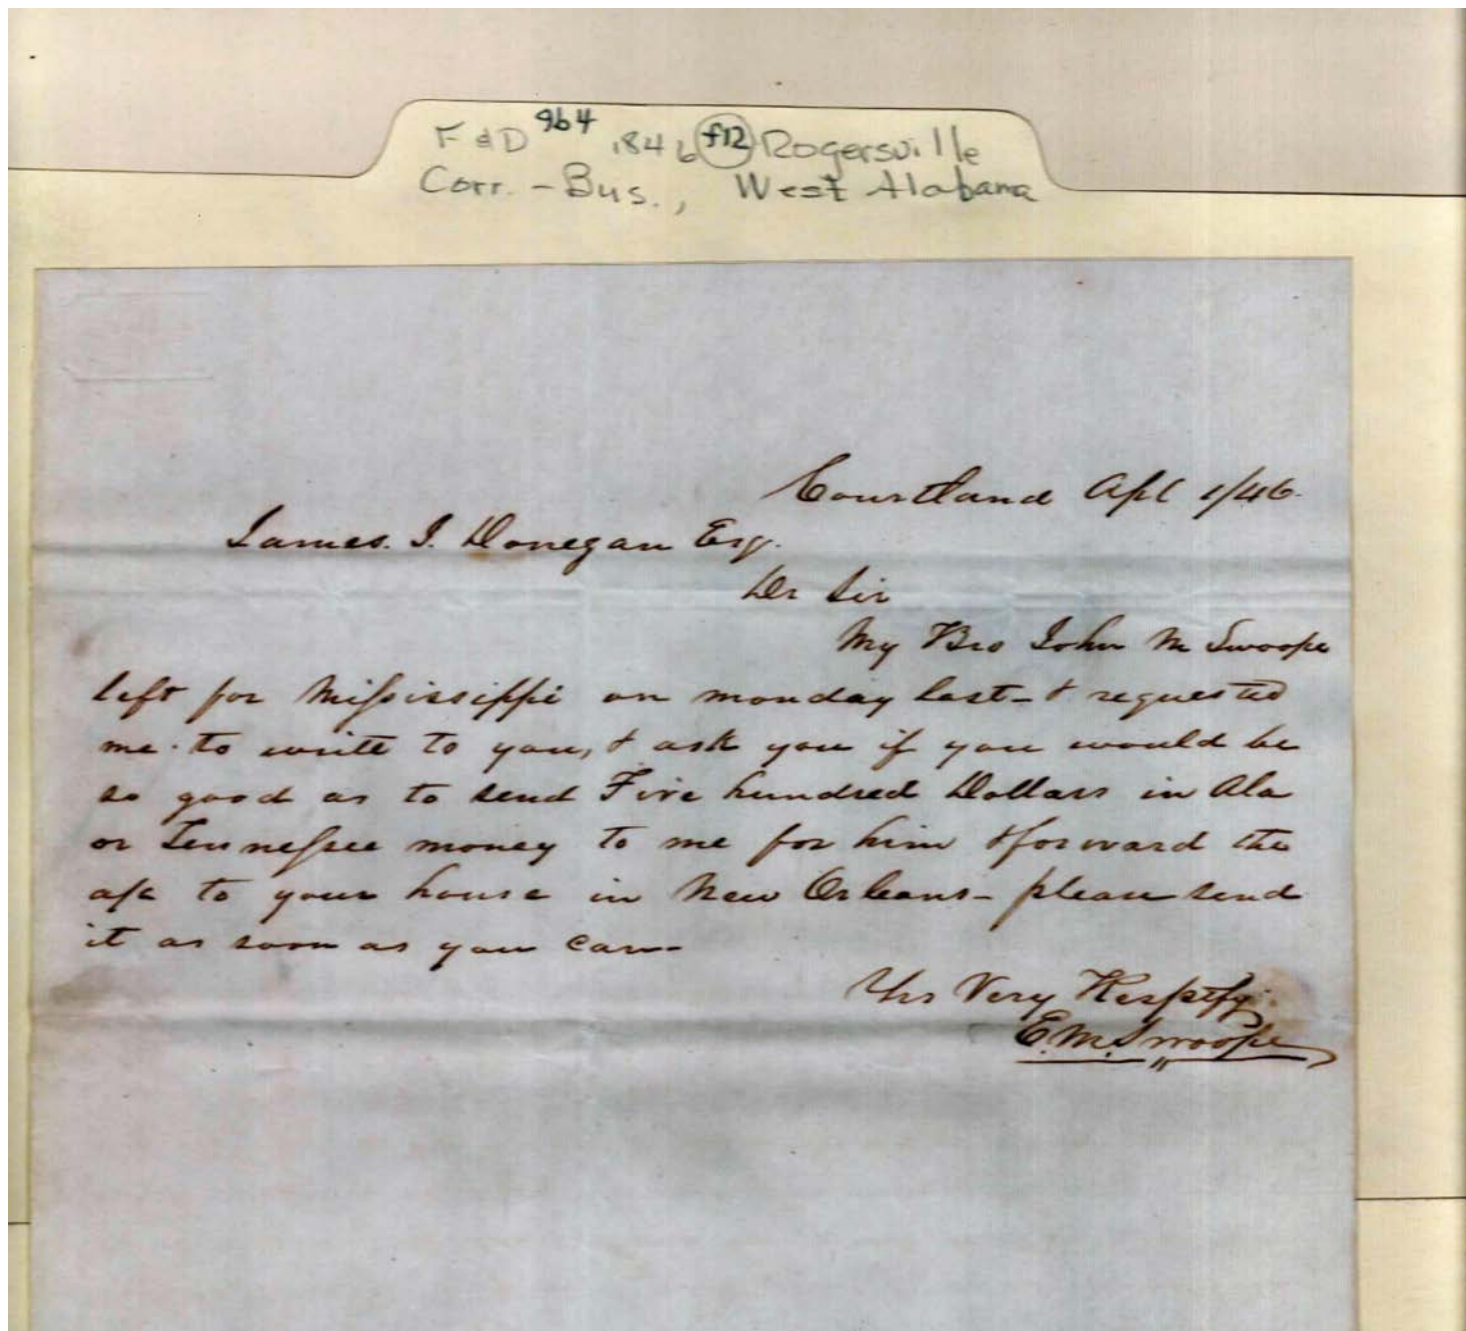 F & D 964 1846 f12 Rogersville
Corr. - Bus., West Alabama
Courtland Apl 1/46.
James. J. Donegan Esq.
Dr Sir
My Bro John M Swoope
left for Mississippi on monday last - & requested
me. to write to you, & ask you if you would be
so good as to send Five hundred Dollars in Ala
or Tennessee money to me for him & forward the
a/c to your house in New Orleans - please send
it as soon as you can -
Yrs Very Respctfy.
E. M. Swoope